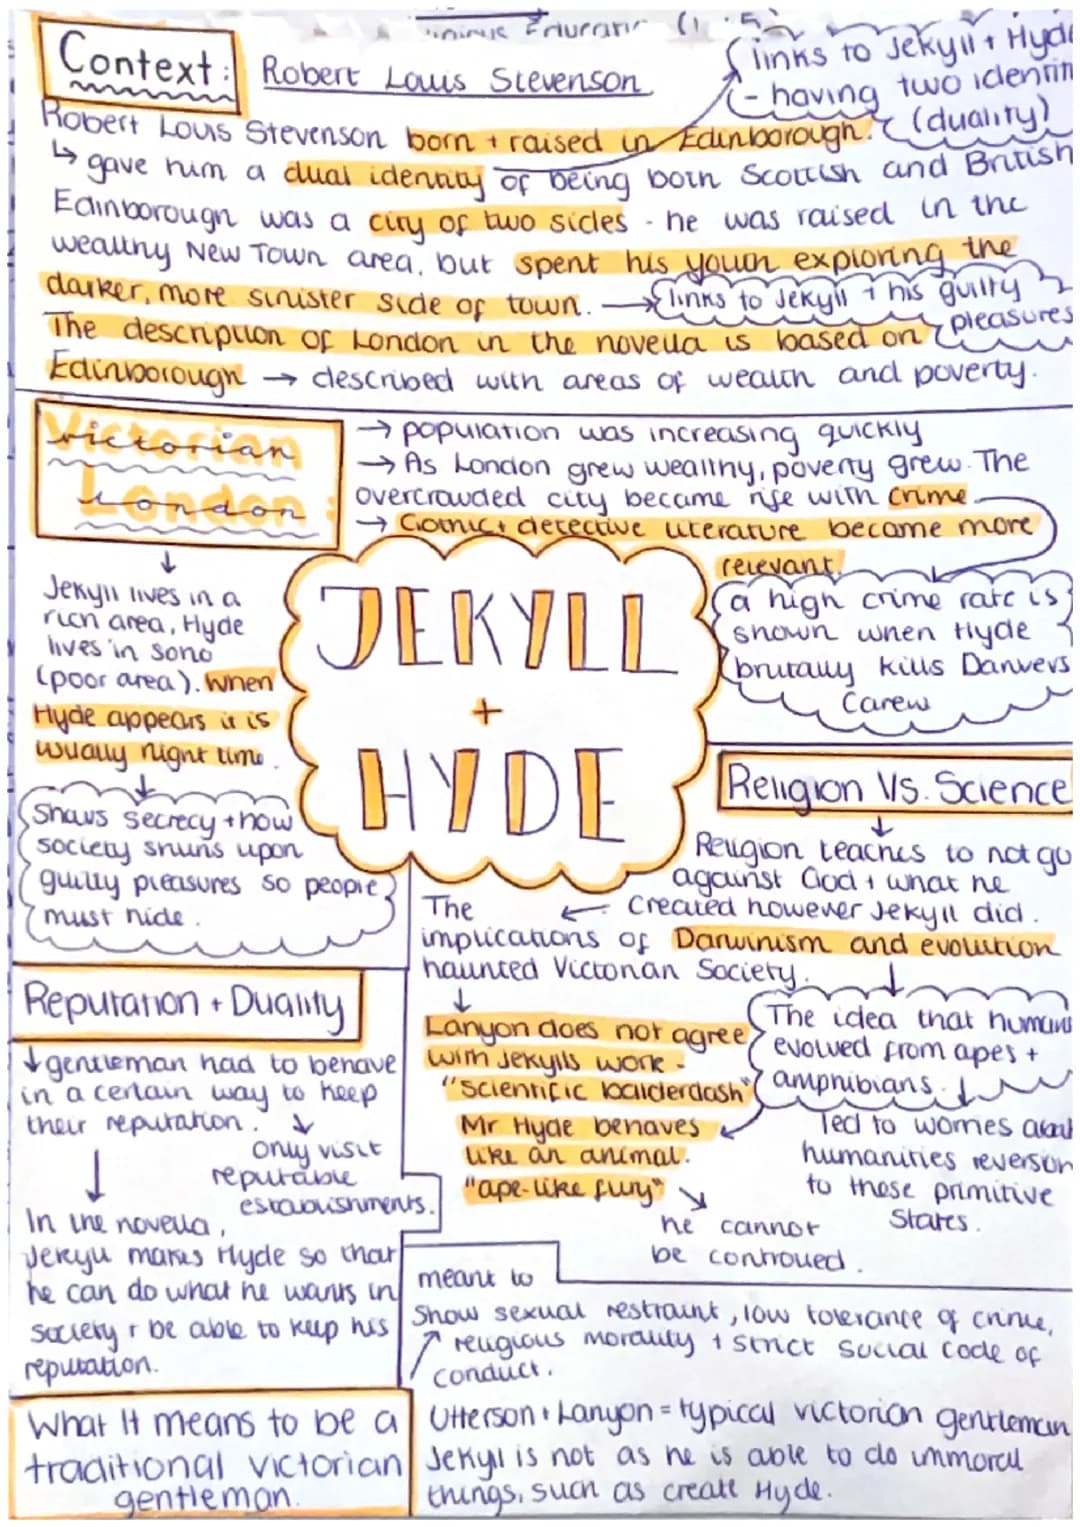 Context:
Robert Louis Stevenson
links to Jekyll + Hyde
- having two identit
(duality)
Robert Louis Stevenson born + raised in Edinborough.
↳ gave him a dual identity of being both Scottish and British
Edinborough was a city of two sides - he was raised in the
wealthy New Town area, but spent his youth exploring the
darker, more sinister side of town. → links to Jekyll + his guilty
pleasures
The description of London in the novella is based on
Edinborough → described with areas of wealth and poverty.
Victorian
London:
→ population was increasing quickly
→ As London grew wealthy, poverty grew. The
overcrowded city became rife with crime
→ Gothic + detective literature became more
relevant.
a high crime rate is
shown when Hyde
brutally kills Danvers
Carew
Jekyll lives in a
rich area, Hyde
lives in soho
(poor area). When
Hyde appears it is
usually night time.
Shows secrecy + how
society shuns upon
guilty pleasures so people
must hide.
JEKYLL
+
HYDE
Religion Vs. Science
Religion teaches to not go
against God + what he
created however Jekyll did.
The
implications of Darwinism and evolution
haunted Victorian Society.
Lanyon does not agree
with Jekylls work -
"Scientific balderdash"
The idea that humans
evolved from apes +
amphibians.
Mr Hyde behaves
like an animal.
"ape-like fury"
he cannot
be controlled.
led to worries about
humanities reversion
to these primitive
States.
Reputation + Duality
gentleman had to behave
in a certain way to keep
their reputation.
only visit
reputable
establishments.
In the novella,
Jekyll makes Hyde so that
he can do what he wants in
society + be able to keep his
reputation.
What it means to be a
traditional victorian
gentleman.
meant to
Show sexual restraint, low tolerance of crime,
religious morality + strict social code of
conduct.
Utterson + Lanyon = typical victorian gentleman
Jekyl is not as he is able to do immoral
things, such as create Hyde.